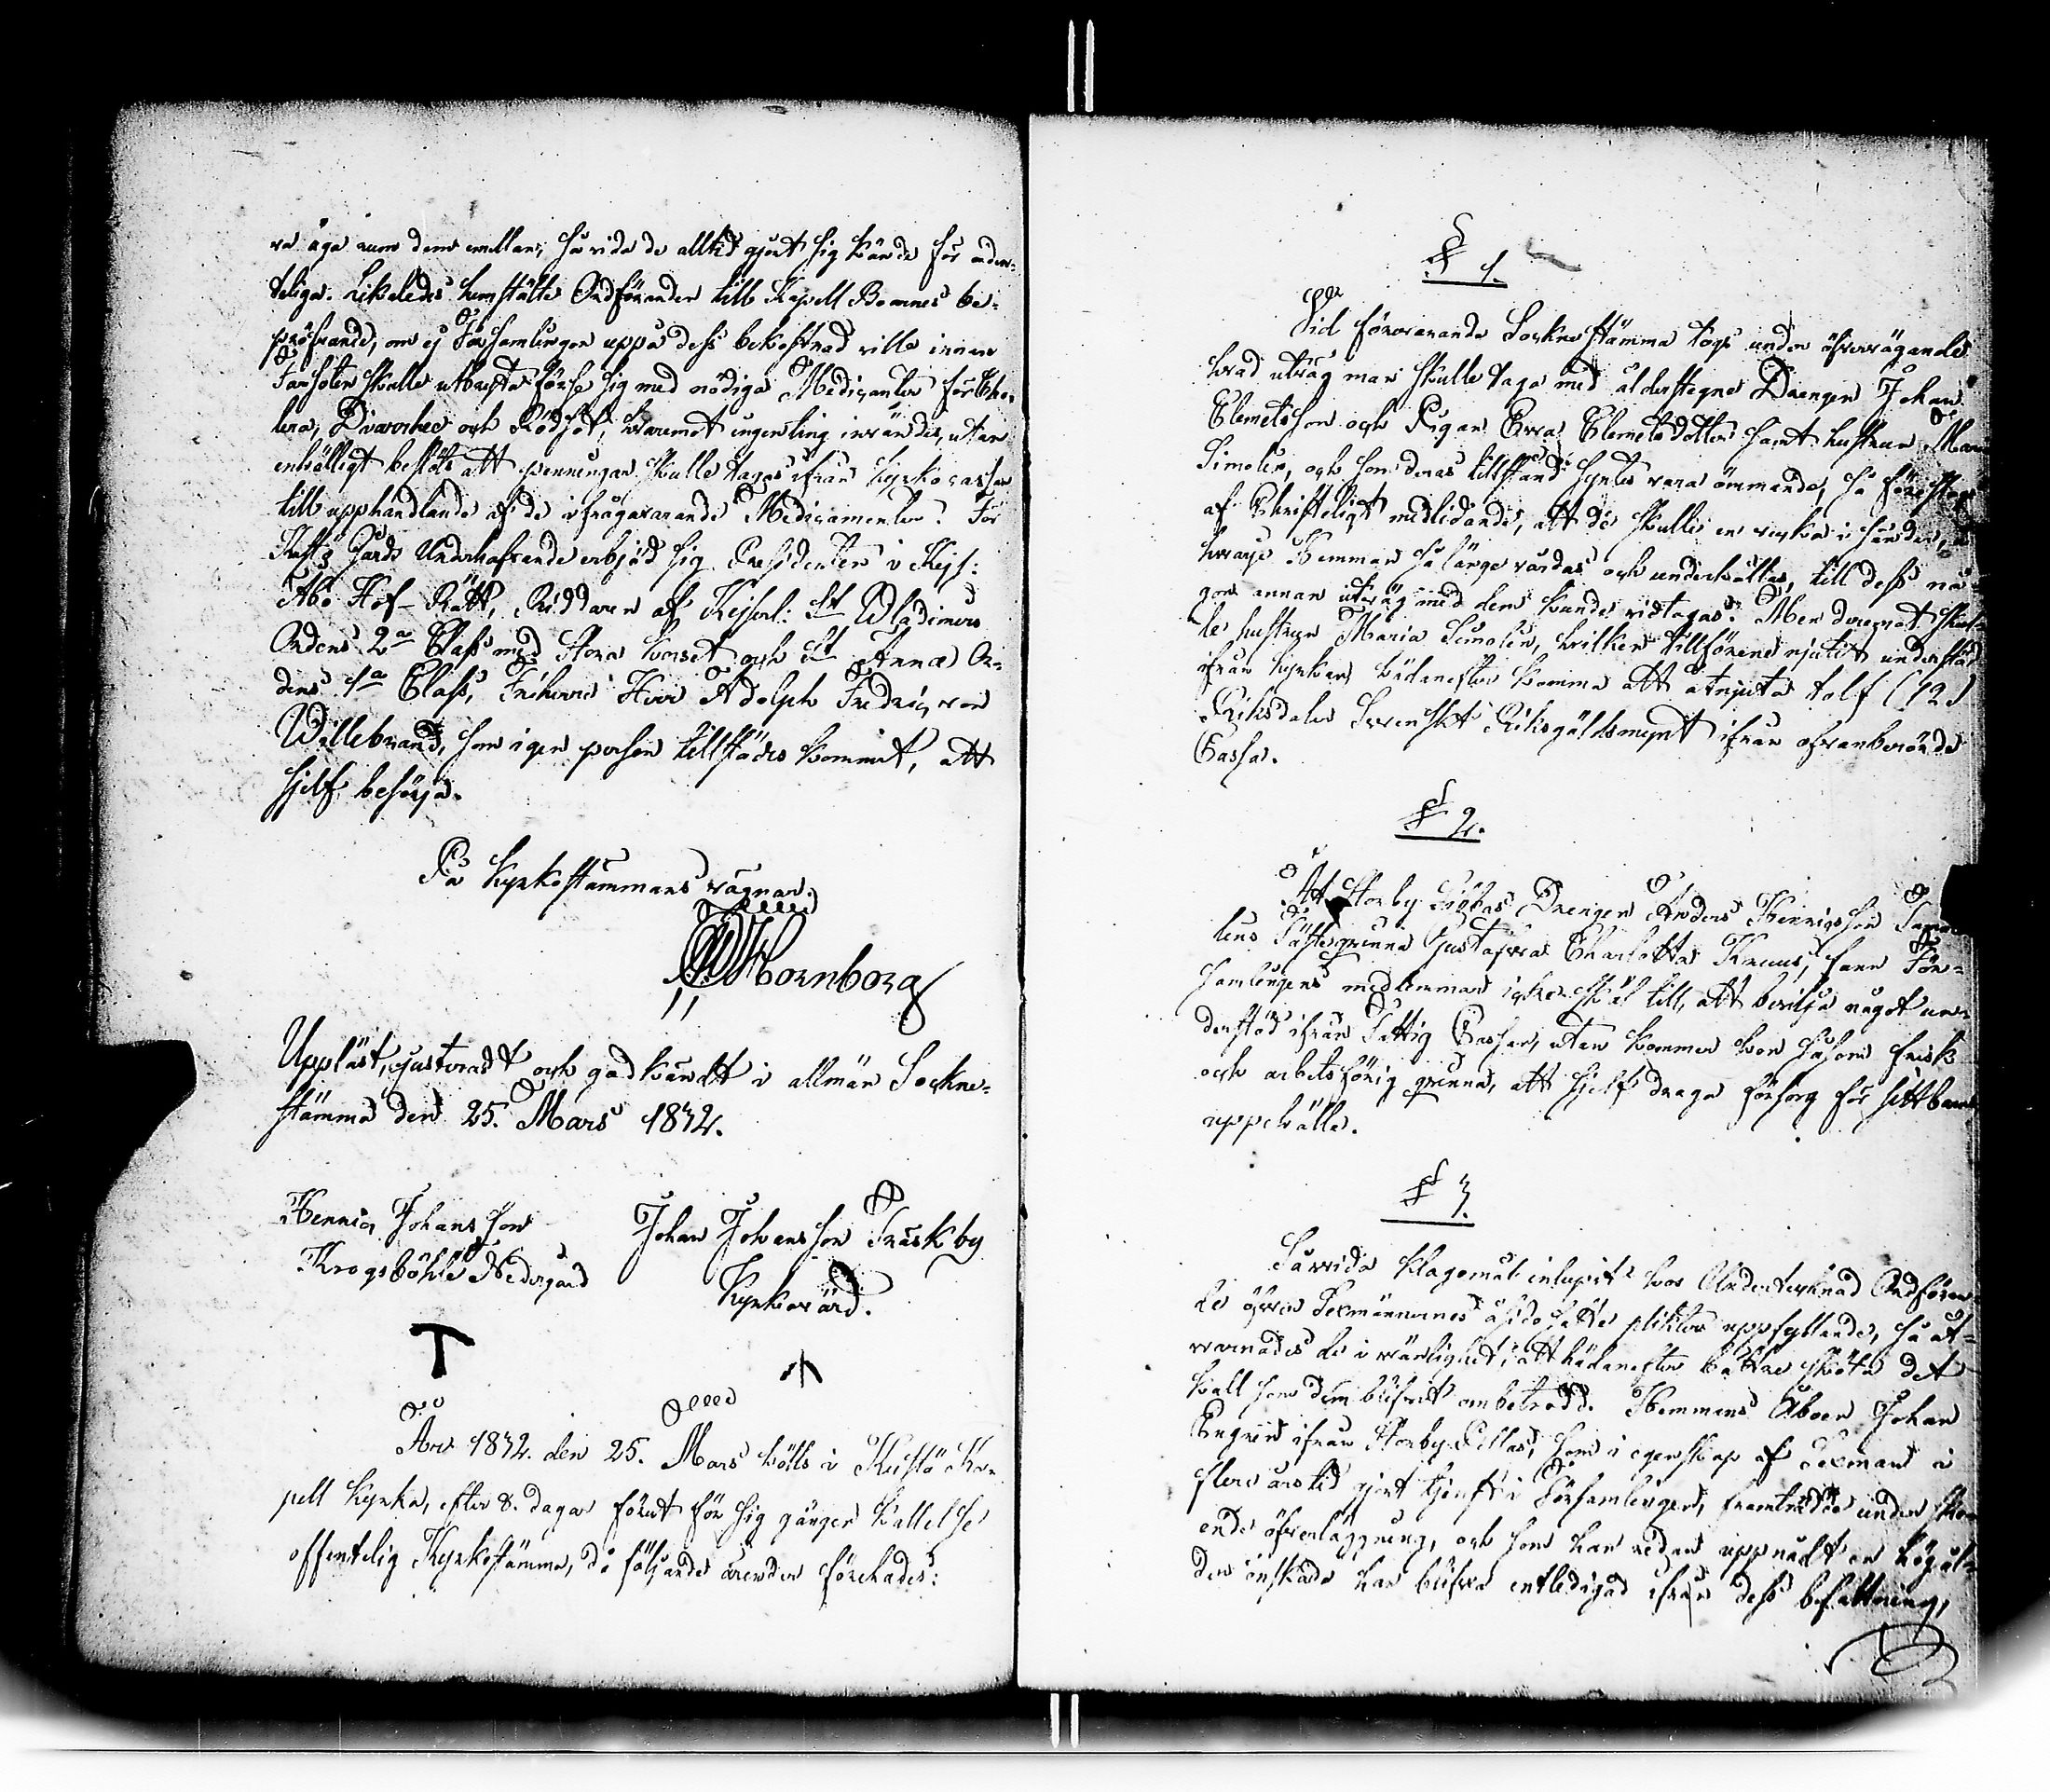 ra äga rum dem emellan, så vida de alltid gjort sig kände för orden-
teliga. Likaledes hemstälte Ordföranden till Kapell Boernes be-
pröfvande, om ej Församlingen uppå dess bekostnad ville innan
Farsoten skulle utbrista förse sig med nödiga Medicamenter för Cho-
lera, Diarrhée och Rödsot, hvaremot ingenting invändes, utan
enhälligt beslöts att penningar skulle tagas ifrån Kyrko cassan
till upphandlande af de ifrågavarande Medicamenter. För
Kustö Gårds Underhafvande erbjöd sig Presidenten i Kejs:
Åbo Hof-Rätt, Riddaren af Kejserl: St Wladimirs
Ordens 2a Class med Stora Korset och St Annæ Or-
dens 1a Class, Friherre Herr Adolph Fredric von
Willebrand, som i egen person tillstädes kommit, att
sjelf besörja.
På Kyrkostämmans vägnar:
Hornborg
Uppläst, justeradt och godkändt i allmän Sockne-
stämma den 25. Mars 1832.
Henric Johansson
Krogsböhle Nedergård
Johan Johansson Träskby
Kyrkovärd.
År 1832. den 25. Mars hölls i Kustö Ka-
pell Kyrka, efter 8. dagar förut för sig gången kallelse
offentelig Kyrkostämma, då följande ärenden förehades:
§ 1.
Vid förevarande Sockne stämma togs under öfvervägande
hvad utväg man skulle taga med ålderstegne Drengen Johan
Clemetsson och Pigan Ewa Clemetsdotter samt hustrun Maria
Simolin, och som deras tillstånd syntes vara ömmande, så föreslogs
af Christeligt medlidande, att de skulle en vecka i sänder, å
hvarje Hemman så länge vårdas och underhållas, till dess nå-
gon annan utväg med dem kunde vidtagas. Men deremot skul-
le hustrun Maria Simolin, hvilken tillförene njutit understöd
ifrån Kyrkan, hädanefter komma att åtnjuta tolf (12)
Riksdaler Svenskt Riksgäldsmynt ifrån ofvanberörde
Cassa.
§ 2.
Åt Storby Drengen Anders Henricsson
lens Fästeqvinna Gustafva Charlotta Kruus, fann För-
samlingens medlemmar icke skäl till, att bevilja något un-
derstöd ifrån Fattig Cassan, utan kommer hon såsom frisk
och arbetsförig qvinna, att sjelf draga försorg för sitt barns
uppehälle.
§ 3.
Såvida klagomål inlupit hos Undertecknad Ordföran-
de öfver Sexmännernes åsidosatte plikters uppfyllande, så åt-
varnades de i vänlighet, att hädanefter bättre sköta det
kall som dem blifvit anbetrodd. Hemmans Åboen Johan
Engren ifrån Storby Pellas, som i egenskap af Sexman i
flere års tid gjort tjenst i Församlingen, framträdde under
ende öfverläggning, och som han redan uppnådt en hög ål-
der önskade han blifva entledigad ifrån dess befattning,